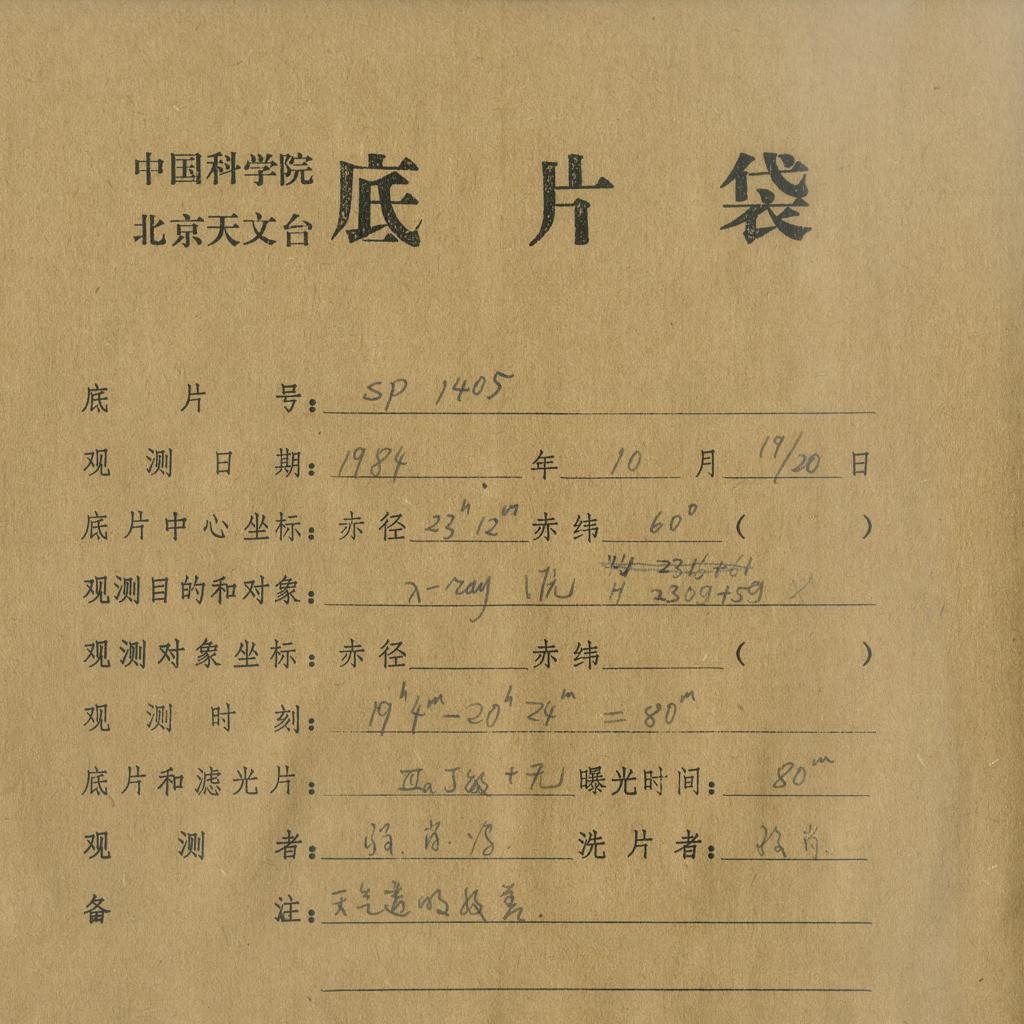 中国科学院
北京天文台
底片袋
底片号： SP 1405
观测日期： 1984 年 10 月 19/20 日
底片中心坐标： 赤径 23ʰ 12ᵐ 赤纬 60° （ ）
观测目的和对象： λ-ray 源 H 2309+59
观测对象坐标： 赤径 赤纬 （ ）
观测时刻： 19ʰ4ᵐ-20ʰ 24ᵐ = 80ᵐ
底片和滤光片： Ⅲa J + 无 曝光时间： 80ᵐ
观测者： 肖 洗片者： 肖
备注： 天气透明